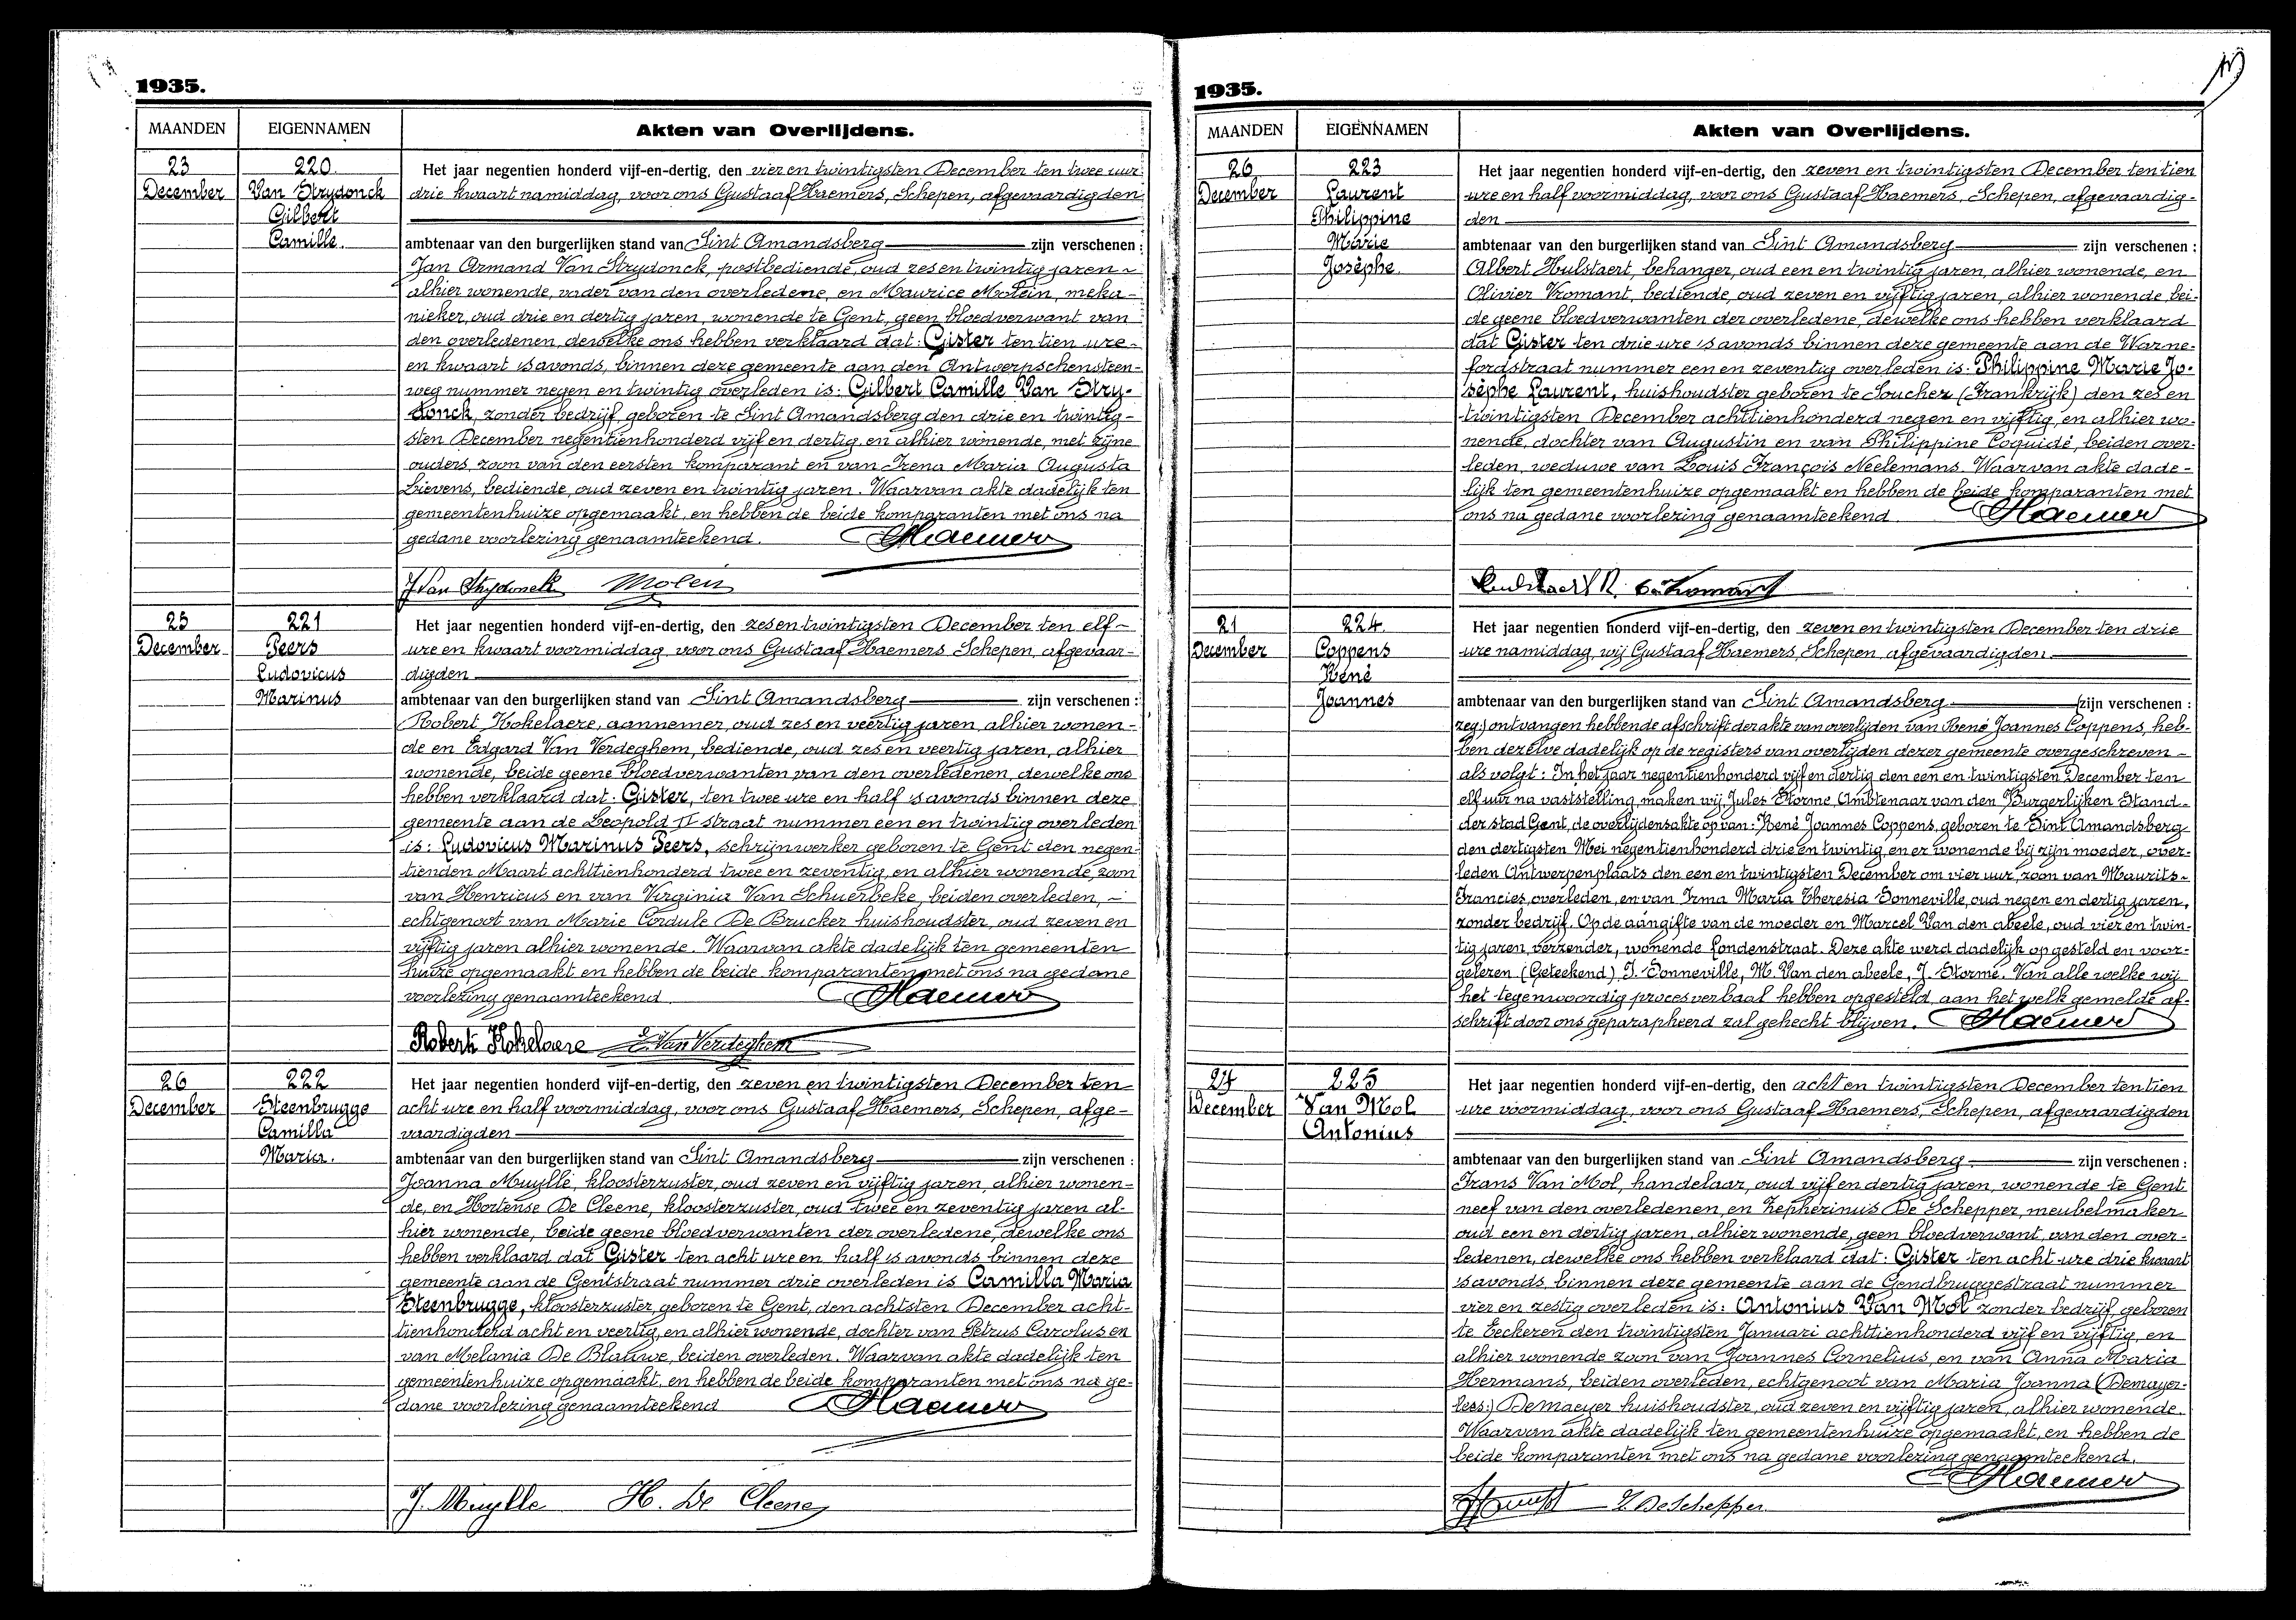 1935.
MAANDEN EIGENNAMEN Akten van Overlijdens.
23 220.
December Van Strydonck
Gilbert
Camille.
Het jaar negentien honderd vijf-en-dertig, den vier en twintigsten December ten twee uur
drie kwaart namiddag, voor ons Gustaaf Haemers, Schepen, afgevaardigden
ambtenaar van den burgerlijken stand van Sint Amandsberg zijn verschenen :
Jan Armand Van Strydonck, postbediende, oud zes en twintig jaren ~
alhier wonende, vader van den overledene, en Maurice Molein, meka-
nieker, oud drie en dertig jaren, wonende te Gent, geen bloedverwant van
den overledenen, dewelke ons hebben verklaard dat: Gister ten tien ure ~
en kwaart 's avonds, binnen deze gemeente aan den Antwerpschensteen-
weg nummer negen en twintig overleden is: Gilbert Camille Van Stry-
donck, zonder bedrijf geboren te Sint Amandsberg den drie en twintig-
sten December negentienhonderd vijf en dertig en alhier wonende, met zijne
ouders, zoon van den eersten komparant en van Irena Maria Augusta
Lievens, bediende, oud zeven en twintig jaren. Waarvan akte dadelijk ten
gemeentenhuize opgemaakt, en hebben de beide komparanten met ons na
gedane voorlezing genaamteekend. Haemers
J Van Strydonck Molein
25 221
December Peers
Ludovicus
Marinus
Het jaar negentien honderd vijf-en-dertig, den zes en twintigsten December ten elf ~
ure en kwaart voormiddag voor ons Gustaaf Haemers, Schepen, afgevaar-
digden
ambtenaar van den burgerlijken stand van Sint Amandsberg zijn verschenen :
Robert Kokelaere, aannemer, oud zes en veertig jaren alhier wonen-
de en Edgard Van Verdeghem, bediende, oud zes en veertig jaren, alhier
wonende, beide geene bloedverwanten van den overledenen, dewelke ons
hebben verklaard dat: Gister, ten twee ure en half 's avonds binnen deze
gemeente aan de Leopold II straat nummer een en twintig overleden
is: Ludovicus Marinus Peers, schrijnwerker geboren te Gent den negen-
tienden Maart achttienhonderd twee en zeventig, en alhier wonende, zoon
van Henricus en van Virginia Van Schuerbeke, beiden overleden, ~
echtgenoot van Marie Cordule De Brucker huishoudster, oud zeven en
vijftig jaren alhier wonende. Waarvan akte dadelijk ten gemeenten
huize opgemaakt en hebben de beide komparanten met ons na gedane
voorlezing genaamteekend. Haemers
Robert Kokelaere E. Van Verdeghem
26 222
December Steenbrugge
Camilla
Maria.
Het jaar negentien honderd vijf-en-dertig, den zeven en twintigsten December ten
acht ure en half voormiddag, voor ons Gustaaf Haemers, Schepen, afge-
vaardigden
ambtenaar van den burgerlijken stand van Sint Amandsberg zijn verschenen :
Joanna Muylle, kloosterzuster, oud zeven en vijftig jaren, alhier wonen-
de, en Hortense De Cleene, kloosterzuster, oud twee en zeventig jaren al-
hier wonende, beide geene bloedverwanten der overledene, dewelke ons
hebben verklaard dat Gister ten acht ure en half 's avonds binnen deze
gemeente aan de Gentstraat nummer drie overleden is Camilla Maria
Steenbrugge, kloosterzuster, geboren te Gent, den achtsten December acht-
tienhonderd acht en veertig, en alhier wonende, dochter van Petrus Carolus en
van Melania De Blauwe, beiden overleden. Waarvan akte dadelijk ten
gemeentenhuize opgemaakt, en hebben de beide komparanten met ons na ge-
dane voorlezing genaamteekend Haemers
J. Muylle H. De Cleene
1935.
MAANDEN EIGENNAMEN Akten van Overlijdens.
26 223
December Laurent
Philippine
Marie
Josèphe.
Het jaar negentien honderd vijf-en-dertig, den zeven en twintigsten December ten tien
ure en half voormiddag, voor ons Gustaaf Haemers, Schepen, afgevaardig-
den
ambtenaar van den burgerlijken stand van Sint Amandsberg zijn verschenen :
Albert Hulstaert, behanger, oud een en twintig jaren, alhier wonende, en
Olivier Vromant, bediende, oud zeven en vijftig jaren, alhier wonende bei-
de geene bloedverwanten der overledene, dewelke ons hebben verklaard
dat Gister ten drie ure 's avonds binnen deze gemeente aan de Warne-
fordstraat nummer een en zeventig overleden is: Philippine Marie Jo-
sèphe Laurent, huishoudster geboren te Souchez (Frankrijk) den zes en
twintigsten December achttienhonderd negen en vijftig, en alhier wo-
nende, dochter van Augustin en van Philippine Coquidé, beiden over-
leden, weduwe van Louis François Neelemans. Waarvan akte dade-
lijk ten gemeentenhuize opgemaakt en hebben de beide komparanten met
ons na gedane voorlezing genaamteekend. Haemers
21 224
December Coppens
René
Joannes
Het jaar negentien honderd vijf-en-dertig, den zeven en twintigsten December ten drie
ure namiddag, wij Gustaaf Haemers, Schepen, afgevaardigden
ambtenaar van den burgerlijken stand van Sint Amandsberg zijn verschenen :
zeg:) ontvangen hebbende afschrift der akte van overlijden van René Joannes Coppens, heb-
ben dezelve dadelijk op de registers van overlijden dezer gemeente overgeschreven ~
als volgt: In het jaar negentienhonderd vijf en dertig den een en twintigsten December ten
elf uur na vaststelling, maken wij, Jules Storme, Ambtenaar van den Burgerlijken Stand
der stad Gent, de overlijdensakte op van: René Joannes Coppens, geboren te Sint Amandsberg
den dertigsten Mei negentienhonderd drie en twintig, en er wonende bij zijn moeder, over-
leden Antwerpenplaats den een en twintigsten December om vier uur, zoon van Maurits ~
Francies, overleden, en van Irma Maria Theresia Donneville, oud negen en dertig jaren,
zonder bedrijf. Op de aangifte van de moeder en Marcel Van den abeele, oud vier en twin-
tig jaren, verzender, wonende Londenstraat. Deze akte werd dadelijk opgesteld en voor-
gelezen (Geteekend) I. Donneville, M. Van den abeele, J. Storme. Van alle welke wij
het tegenwoordig procesverbaal hebben opgesteld, aan het welk gemelde af-
schrift door ons geparapheerd zal gehecht blijven. Haemers
27 225
December Van Mol
Antonius
Het jaar negentien honderd vijf-en-dertig, den acht en twintigsten December ten tien
ure voormiddag, voor ons Gustaaf Haemers, Schepen, afgevaardigden
ambtenaar van den burgerlijken stand van Sint Amandsberg zijn verschenen :
Frans Van Mol, handelaar, oud vijf en dertig jaren, wonende te Gent
neef van den overledenen, en Zepherinus De Schepper, meubelmaker
oud een en dertig jaren, alhier wonende, geen bloedverwant, van den over-
ledenen, dewelke ons hebben verklaard dat: Gister ten acht ure drie kwaart
's avonds, binnen deze gemeente aan de Gendbruggestraat nummer
vier en zestig overleden is: Antonius Van Mol zonder bedrijf, geboren
te Eeckeren den twintigsten Januari achttienhonderd vijf en vijftig, en
alhier wonende zoon van Joannes Cornelius, en van Anna Maria
Hermans, beiden overleden, echtgenoot van Maria Joanna (Demayer-
lees:) Demaeyer huishoudster, oud zeven en vijftig jaren, alhier wonende.
Waarvan akte dadelijk ten gemeentenhuize opgemaakt, en hebben de
beide komparanten met ons na gedane voorlezing genaamteekend.
Haemers
Z. De Schepper